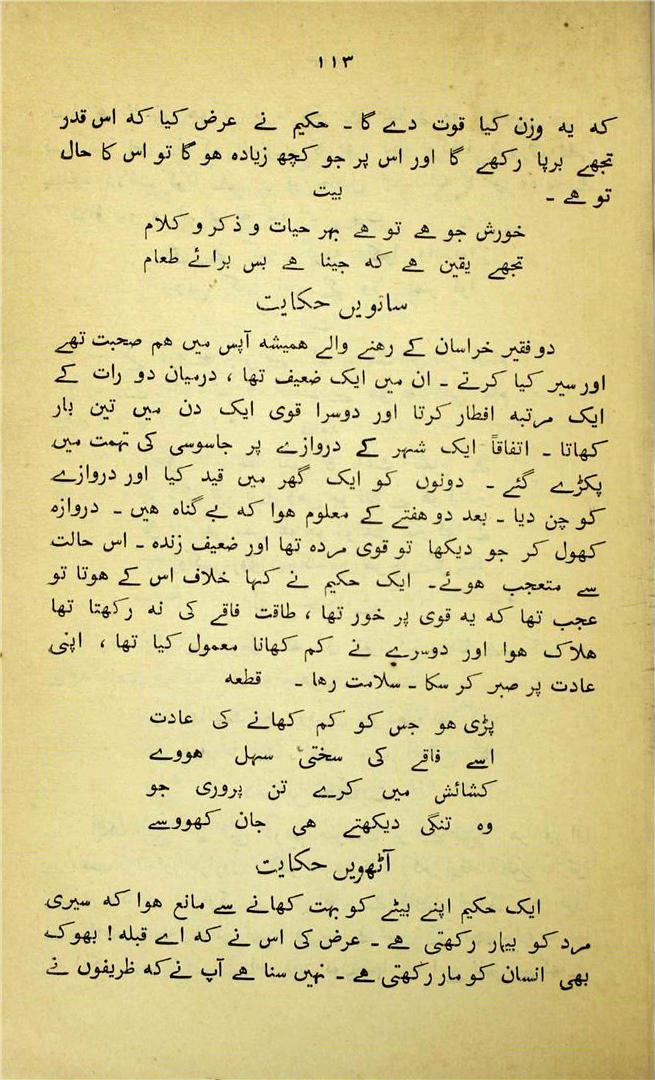 ۱۱۳
کہ یہ وزن کیا قوت دے گا ۔ حکیم نے عرض کیا کہ اس قدر
تجھے برپا رکھے گا اور اس پر جو کچھ زیادہ ہو گا تو اس کا حال
تو ہے ۔ بیت
خورش جو ہے تو ہے بہر حیات و ذکر و کلام
تجھے یقین ہے کہ جینا ہے بس برائے طعام
ساتویں حکایت
دو فقیر خراسان کے رہنے والے ہمیشہ آپس میں ہم صحبت تھے
اور سیر کیا کرتے ۔ ان میں ایک ضعیف تھا ، درمیان دو رات کے
ایک مرتبہ افطار کرتا اور دوسرا قوی ایک دن میں تین بار
کھاتا ۔ اتفاقاً ایک شہر کے دروازے پر جاسوسی کی تہمت میں
پکڑے گئے ۔ دونوں کو ایک گھر میں قید کیا اور دروازے
کو چن دیا ۔ بعد دو ہفتے کے معلوم ہوا کہ بے گناہ ہیں ۔ دروازہ
کھول کر جو دیکھا تو قوی مردہ تھا اور ضعیف زندہ ۔ اس حالت
سے متعجب ہوئے ۔ ایک حکیم نے کہا خلاف اس کے ہوتا تو
عجب تھا کہ یہ قوی پر خور تھا ، طاقت فاقے کی نہ رکھتا تھا
ہلاک ہوا اور دوسرے نے کم کھانا معمول کیا تھا ، اپنی
عادت پر صبر کر سکا ۔ سلامت رہا ۔ قطعہ
پڑی ہو جس کو کم کھانے کی عادت
اسے فاقے کی سختی سہل ہووے
کشائش میں کرے تن پروری جو
وہ تنگی دیکھتے ہی جان کھووے
آٹھویں حکایت
ایک حکیم اپنے بیٹے کو بہت کھانے سے مانع ہوا کہ سیری
مرد کو بیمار رکھتی ہے ۔ عرض کی اس نے کہ اے قبلہ ! بھوک
بھی انسان کو مار رکھتی ہے ۔ نہیں سنا ہے آپ نے کہ ظریفوں نے